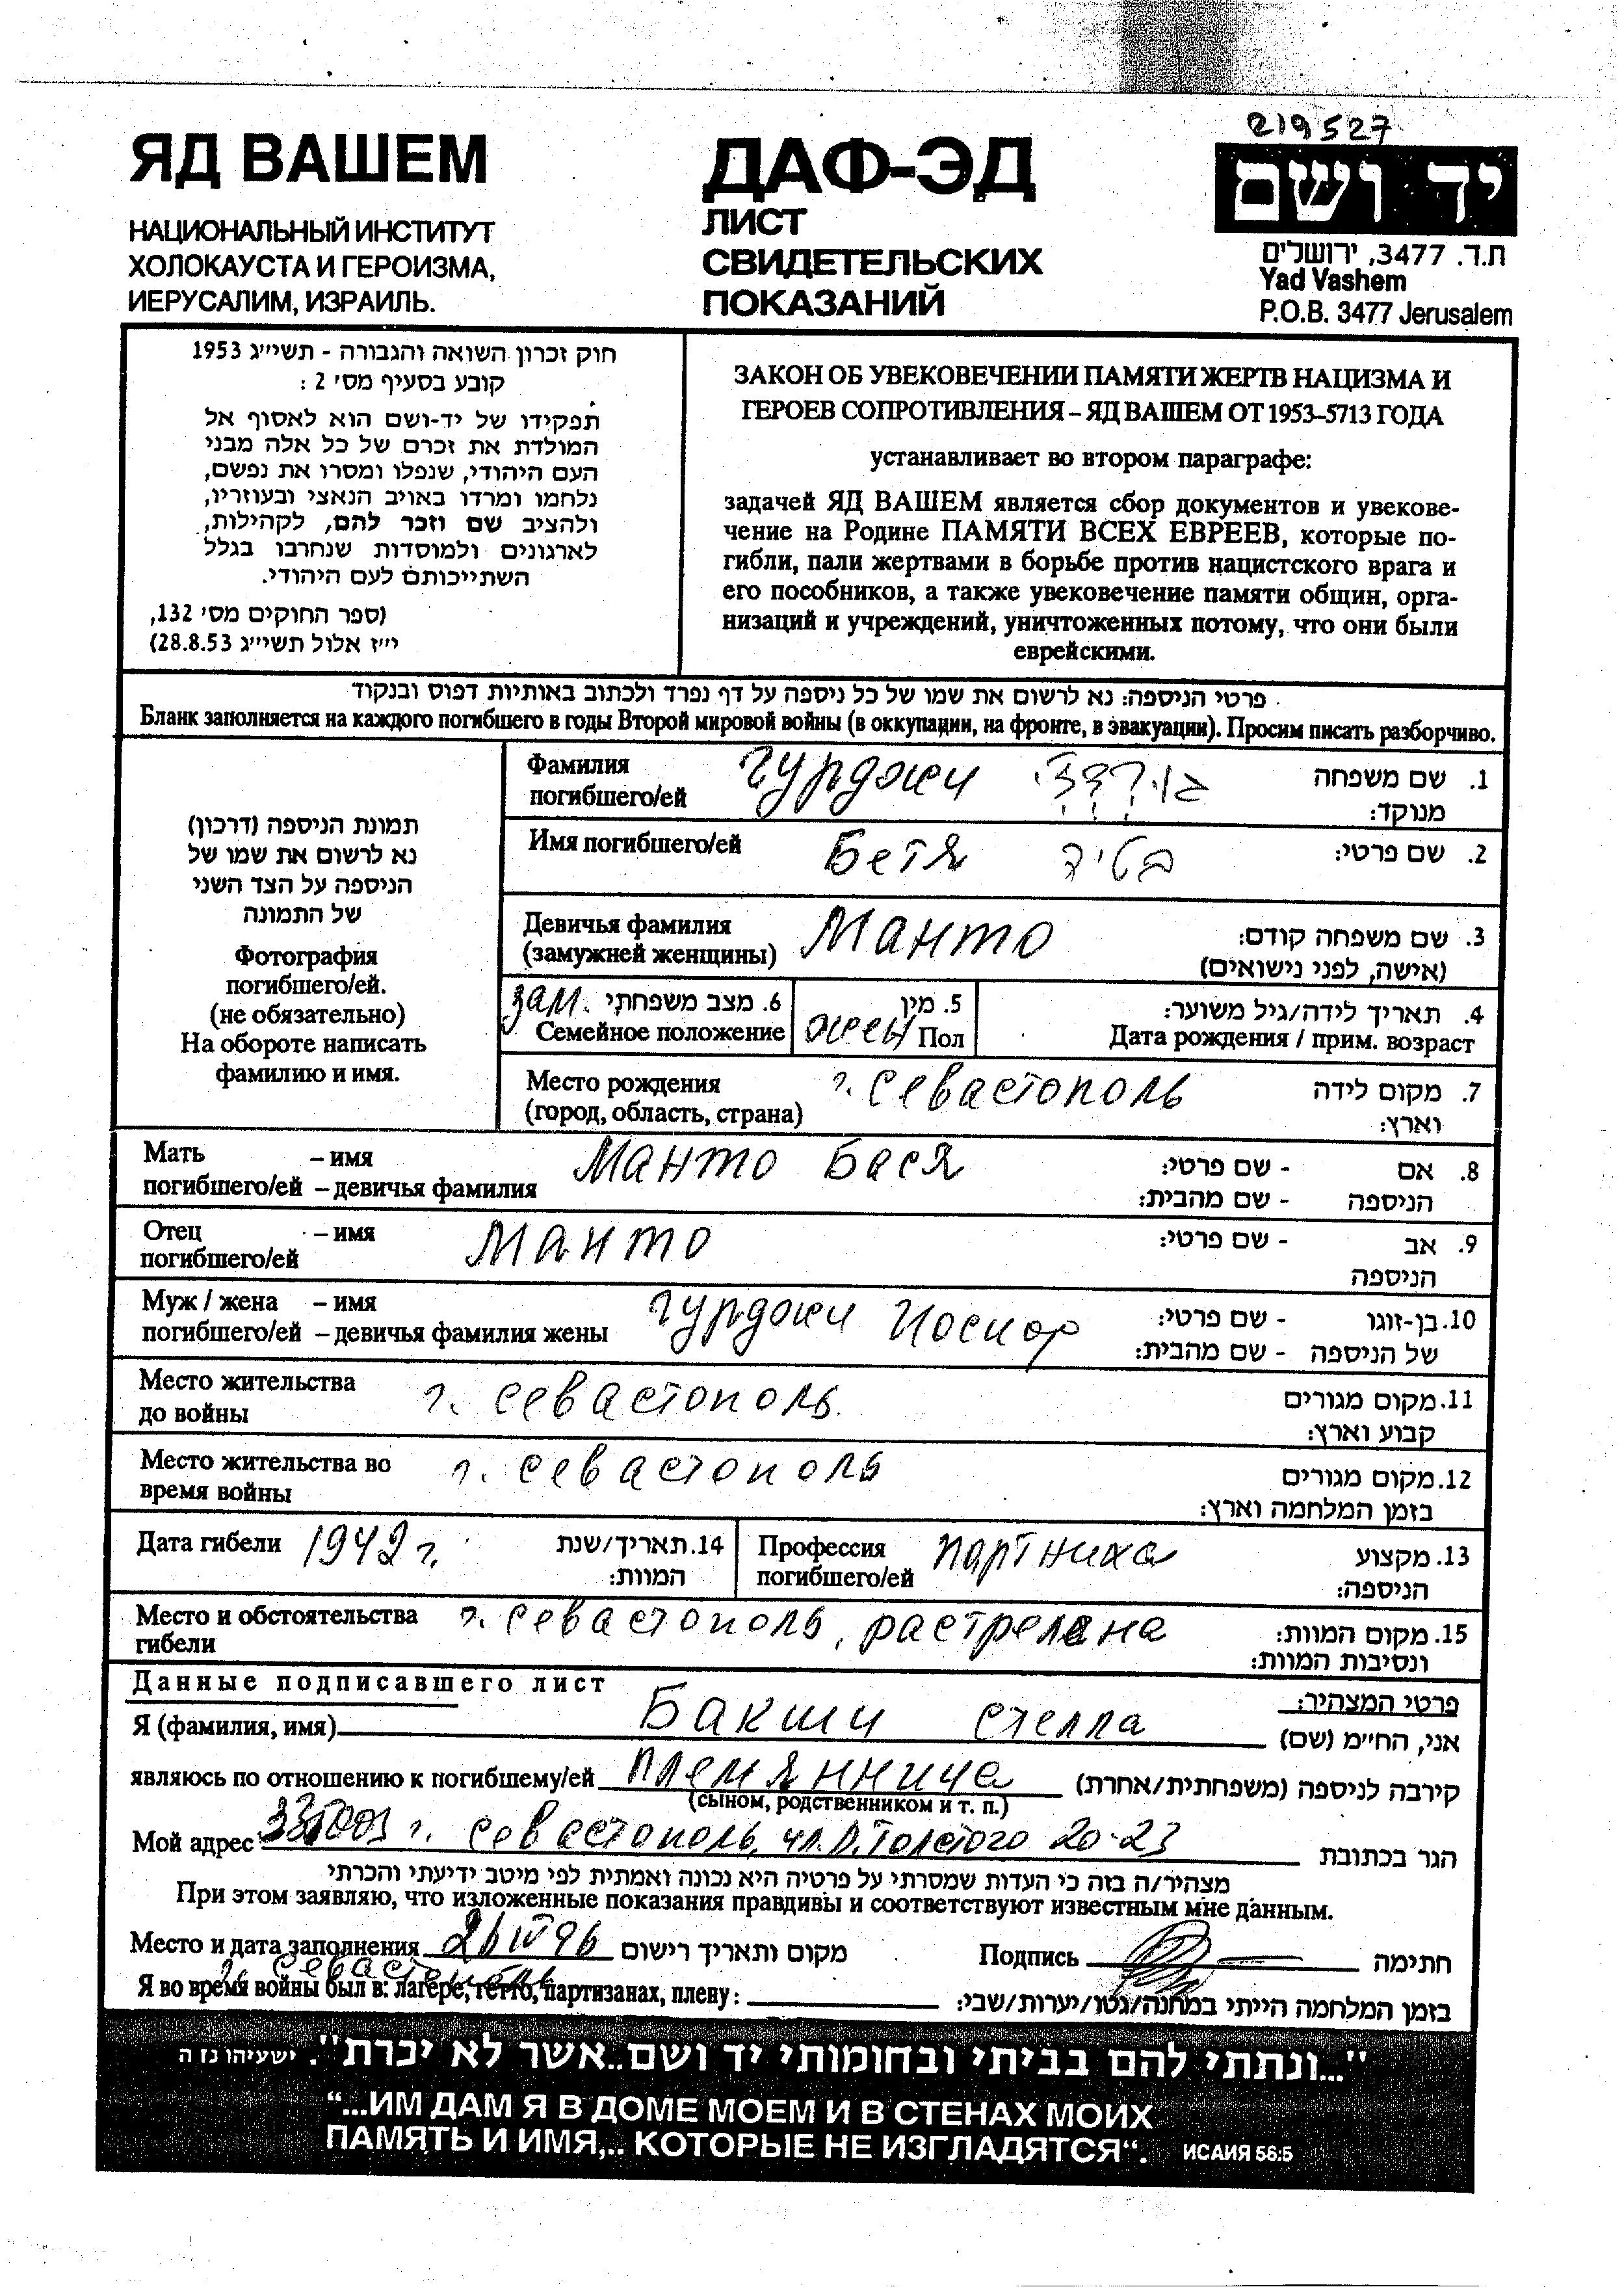 219527
ЯД ВАШЕМ
НАЦИОНАЛЬНЫЙ ИНСТИТУТ
ХОЛОКАУСТА И ГЕРОИЗМА,
ИЕРУСАЛИМ, ИЗРАИЛЬ.
ДАФ-ЭД
ЛИСТ
СВИДЕТЕЛЬСКИХ
ПОКАЗАНИЙ
יד ושם
ת.ד. 3477, ירושלים
Yad Vashem
P.O.B. 3477 Jerusalem
חוק זכרון השואה והגבורה - תשי״ג 1953
קובע בסעיף מס׳ 2 :
תפקידו של יד-ושם הוא לאסוף אל
המולדת את זכרם של כל אלה מבני
העם היהודי, שנפלו ומסרו את נפשם,
נלחמו ומרדו באויב הנאצי ובעוזריו,
ולהציב שם וזכר להם, לקהילות,
לארגונים ולמוסדות שנחרבו בגלל
השתייכותם לעם היהודי.
(ספר החוקים מס׳ 132,
י״ז אלול תשי״ג 28.8.53)
ЗАКОН ОБ УВЕКОВЕЧЕНИИ ПАМЯТИ ЖЕРТВ НАЦИЗМА И
ГЕРОЕВ СОПРОТИВЛЕНИЯ – ЯД ВАШЕМ ОТ 1953–5713 ГОДА
устанавливает во втором параграфе:
задачей ЯД ВАШЕМ является сбор документов и увекове-
чение на Родине ПАМЯТИ ВСЕХ ЕВРЕЕВ, которые по-
гибли, пали жертвами в борьбе против нацистского врага и
его пособников, а также увековечение памяти общин, орга-
низаций и учреждений, уничтоженных потому, что они были
еврейскими.
פרטי הניספה: נא לרשום את שמו של כל ניספה על דף נפרד ולכתוב באותיות דפוס ובנקוד
Бланк заполняется на каждого погибшего в годы Второй мировой войны (в оккупации, на фронте, в эвакуации). Просим писать разборчиво.
תמונת הניספה (דרכון)
נא לרשום את שמו של
הניספה על הצד השני
של התמונה
Фотография
погибшего/ей.
(не обязательно)
На обороте написать
фамилию и имя.
Фамилия Гурджи 1. שם משפחה
погибшего/ей מנוקד:
Имя погибшего/ей Бетя 2. שם פרטי:
Девичья фамилия Манто 3. שם משפחה קודם:
(замужней женщины) (אישה, לפני נישואים)
зам. 6. מצב משפחתי 5. מין 4. תאריך לידה/גיל משוער:
Семейное положение жен Пол Дата рождения / прим. возраст
Место рождения г. Севастополь 7. מקום לידה
(город, область, страна) וארץ:
Мать – имя Манто Бася - שם פרטי: 8. אם
погибшего/ей – девичья фамилия - שם מהבית: הניספה
Отец – имя Манто - שם פרטי: 9. אב
погибшего/ей הניספה
Муж / жена – имя Гурджи Иосиф - שם פרטי: 10. בן-זוגו
погибшего/ей – девичья фамилия жены - שם מהבית: של הניספה
Место жительства г. Севастополь. 11. מקום מגורים
до войны קבוע וארץ:
Место жительства во г. Севастополь 12. מקום מגורים
время войны בזמן המלחמה וארץ:
Дата гибели 1942 г. 14. תאריך/שנת Профессия партниха 13. מקצוע
המוות: погибшего/ей הניספה:
Место и обстоятельства г. Севастополь, растрелена 15. מקום המוות:
гибели ונסיבות המוות:
Данные подписавшего лист פרטי המצהיר:
Я (фамилия, имя) Бакши Стелла אני, החי״מ (שם)
являюсь по отношению к погибшему/ей племянница קירבה לניספה (משפחתית/אחרת)
(сыном, родственником и т. п.)
Мой адрес г. Севастополь, ул. Л. Толстого 20-23 הגר בכתובת
מצהיר/ה בזה כי העדות שמסרתי על פרטיה היא נכונה ואמתית לפי מיטב ידיעתי והכרתי
При этом заявляю, что изложенные показания правдивы и соответствуют известным мне данным.
Место и дата заполнения 26 IV 96 מקום ותאריך רישום Подпись חתימה
г. Севастополь
Я во время войны был в: лагере, гетто, партизанах, плену: בזמן המלחמה הייתי במחנה/גטו/יערות/שבי:
"...ונתתי להם בביתי ובחומותי יד ושם..אשר לא יכרת". ישעיהו נז ה
“...ИМ ДАМ Я В ДОМЕ МОЕМ И В СТЕНАХ МОИХ
ПАМЯТЬ И ИМЯ,.. КОТОРЫЕ НЕ ИЗГЛАДЯТСЯ“. ИСАИЯ 56:5